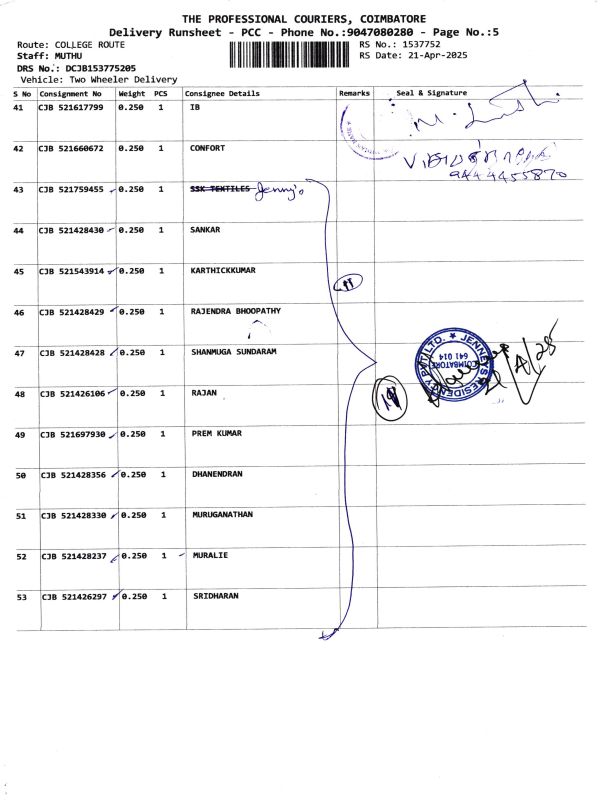 THE PROFESSIONAL COURIERS, COIMBATORE
Delivery Runsheet - PCC - Phone No.:9047080280 - Page No.:5
Route: COLLEGE ROUTE RS No.: 1537752
Staff: MUTHU RS Date: 21-Apr-2025
DRS No.: DCJB153775205
Vehicle: Two Wheeler Delivery
S No Consignment No Weight PCS Consignee Details Remarks Seal & Signature
41 CJB 521617799 0.250 1 IB
42 CJB 521660672 0.250 1 CONFORT
9444455870
43 CJB 521759455 0.250 1 SSK TEXTILES Jenny's
44 CJB 521428430 0.250 1 SANKAR
45 CJB 521543914 0.250 1 KARTHICKKUMAR
46 CJB 521428429 0.250 1 RAJENDRA BHOOPATHY
47 CJB 521428428 0.250 1 SHANMUGA SUNDARAM
JENNEYS RESIDENCY PVT LTD. ★
COIMBATORE
641 014
48 CJB 521426106 0.250 1 RAJAN
49 CJB 521697930 0.250 1 PREM KUMAR
50 CJB 521428356 0.250 1 DHANENDRAN
51 CJB 521428330 0.250 1 MURUGANATHAN
52 CJB 521428237 0.250 1 MURALIE
53 CJB 521426297 0.250 1 SRIDHARAN